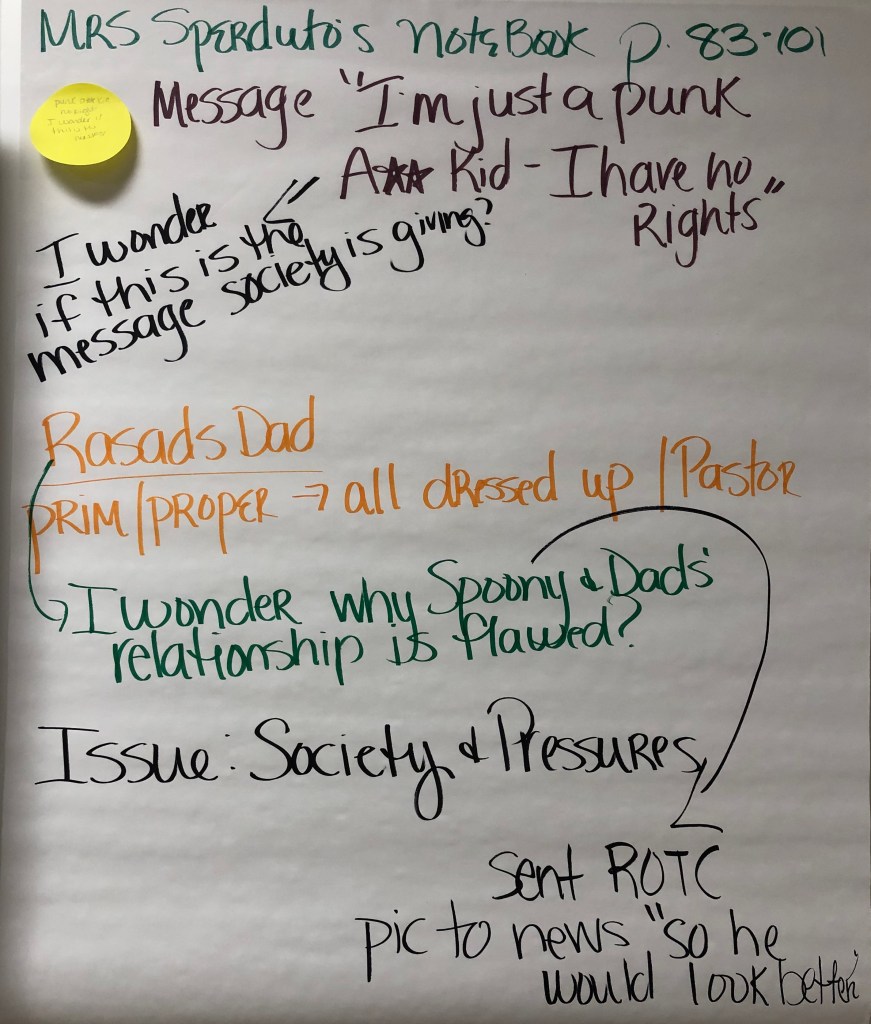 MRS Sperduto's NoteBook p. 83-101
Message "I'm just a punk
A** Kid - I have no
Rights"
I wonder
if this is the
message society is giving?
Rasads Dad
PRIM/PROPER → all dressed up / Pastor
→ I wonder why Spoony & Dads'
relationship is flawed?
Issue: Society & Pressures
Sent ROTC
pic to news "so he
would look better"